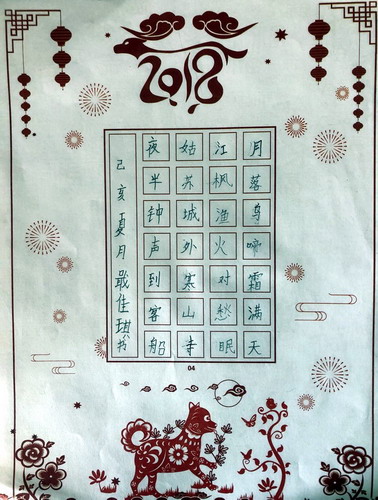 2018
月落乌啼霜满天
江枫渔火对愁眠
姑苏城外寒山寺
夜半钟声到客船
己亥夏月佳书
04